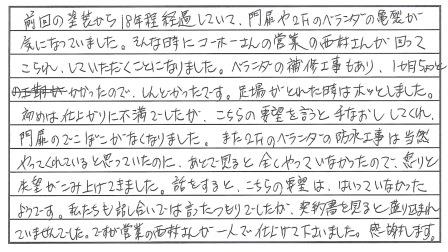 前回の塗装から18年程経過していて、門扉や2Fのベランダの亀裂が
気になっていました。そんな時にコーホーさんの営業の西村さんが回って
こられ、していただくことになりました。ベランダの補修工事もあり、1ヶ月ちょっと
かかったので、しんどかったです。足場がとれた時はホッとしました。
初めは仕上がりに不満でしたが、こちらの要望を言うと手なおししてくれ、
門扉のでこぼこがなくなりました。また2Fのベランダの防水工事は当然
やってくれていると思っていたのに、あとで見ると全くやっていなかったので、怒りと
失望がこみ上げてきました。話をすると、こちらの要望は、はいっていなかった
ようです。私たちも話し合いでは言ったつもりでしたが、契約書を見ると盛り込まれ
ていませんでした。ですが営業の西村さんが一人で仕上げて下さいました。感謝します。